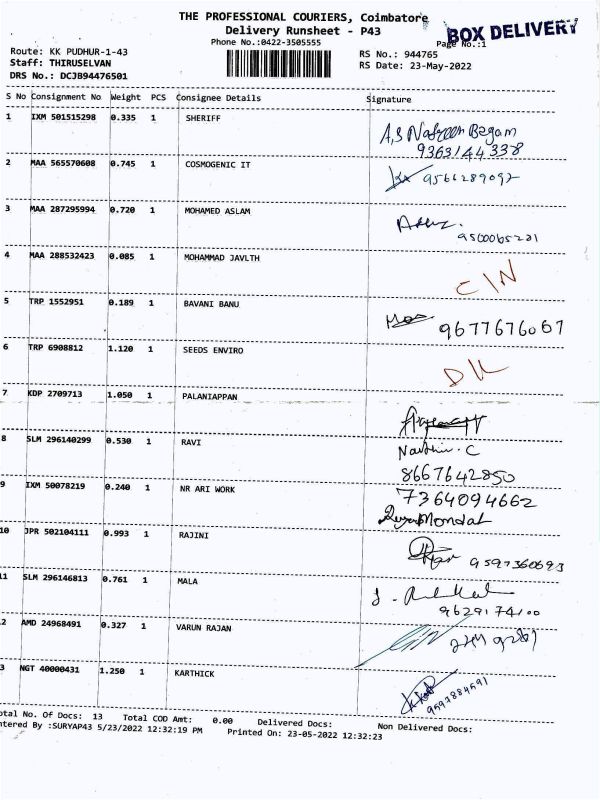 THE PROFESSIONAL COURIERS, Coimbatore
Delivery Runsheet - P43
BOX DELIVERY
Phone No.:0422-3505555
Page No.:1
Route: KK PUDHUR-1-43
RS No.: 944765
Staff: THIRUSELVAN
RS Date: 23-May-2022
DRS No.: DCJB94476501
S No Consignment No Weight PCS Consignee Details Signature
1 IXM 501515298 0.335 1 SHERIFF A,S Nasreen Begam
9363144338
2 MAA 565570608 0.745 1 COSMOGENIC IT 9566289092
3 MAA 287295994 0.720 1 MOHAMED ASLAM
9500065221
4 MAA 288532423 0.085 1 MOHAMMAD JAVLTH
C/N
5 TRP 1552951 0.189 1 BAVANI BANU
9677676067
6 TRP 6908812 1.120 1 SEEDS ENVIRO
7 KDP 2709713 1.050 1 PALANIAPPAN
8 SLM 296140299 0.530 1 RAVI
8667642850
9 IXM 50078219 0.240 1 NR ARI WORK 7364094662
Mondal
10 JPR 502104111 0.993 1 RAJINI
9597360693
11 SLM 296146813 0.761 1 MALA
9629174100
2 AMD 24968491 0.327 1 VARUN RAJAN
3 NGT 40000431 1.250 1 KARTHICK
9597884591
otal No. Of Docs: 13 Total COD Amt: 0.00 Delivered Docs: Non Delivered Docs:
ntered By :SURYAP43 5/23/2022 12:32:19 PM Printed On: 23-05-2022 12:32:23